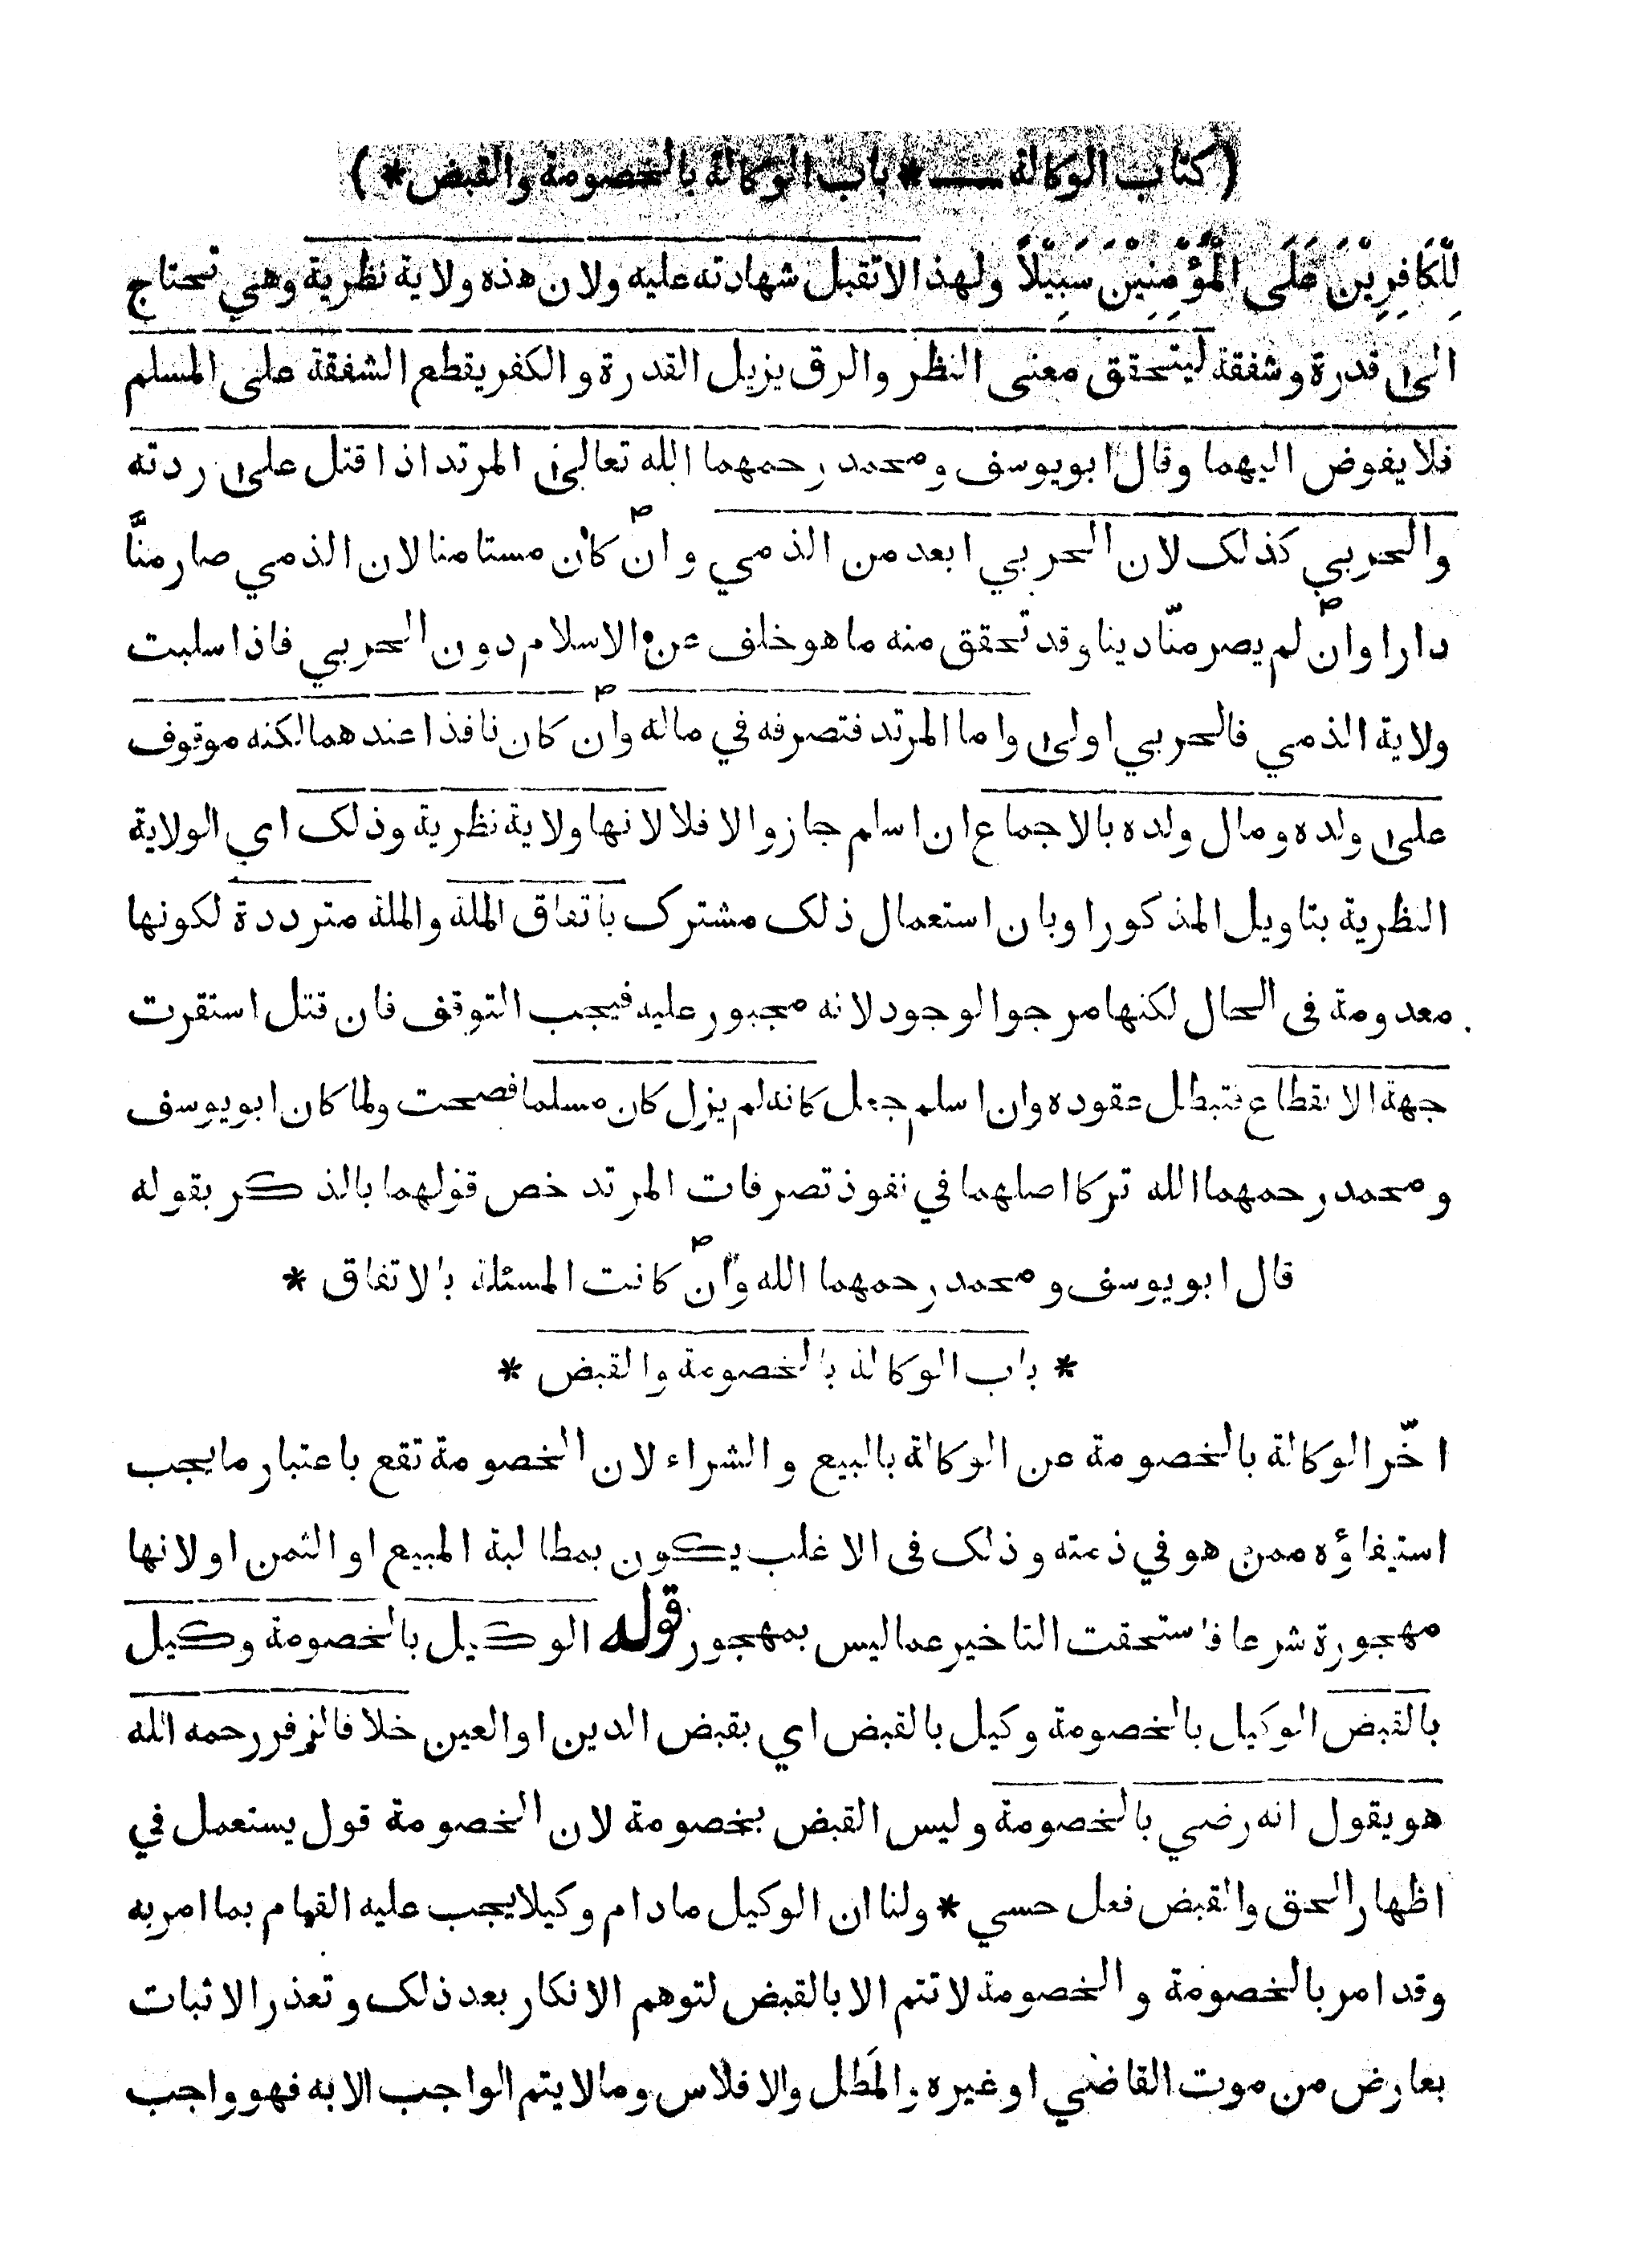 ( كتاب الوكالة ـــــ * باب الوكالة بالخصومة والقبض * )
لِلْكَافِرِيْنَ عَلَى الْمُؤْمِنِيْنَ سَبِيْلاً ولهذا لاتقبل شهادته عليه ولان هذه ولاية نظرية وهي تحتاج
الى قدرة وشفقة ليتحقق معنى النظر والرق يزيل القدرة والكفر يقطع الشفقة على المسلم
فلا يفوض اليهما وقال ابويوسف ومحمد رحمهما الله تعالى المرتد اذا قتل على ردته
والحربي كذلك لان الحربي ابعد من الذمي وان كان مستامنا لان الذمي صار منَّا
دارا وان لم يصر منّا دينا وقد تحقق منه ما هو خلف عن الاسلام دون الحربي فاذا سلبت
ولاية الذمي فالحربي اولى واما المرتد فتصرفه في ماله وان كان نافذا عندهما لكنه موقوف
على ولده ومال ولده بالاجماع ان اسلم جاز والا فلا لانها ولاية نظرية وذلك اي الولاية
النظرية بتاويل المذكور او بان استعمال ذلك مشترك باتفاق الملة والملة مترددة لكونها
معدومة في الحال لكنها مرجو الوجود لانه مجبور عليه فيجب التوقف فان قتل استقرت
جهة الانقطاع فتبطل عقوده وان اسلم جعل كانه لم يزل كان مسلما فصحت ولما كان ابويوسف
ومحمد رحمهما الله تركا اصلهما في نفوذ تصرفات المرتد خص قولهما بالذكر بقوله
قال ابويوسف ومحمد رحمهما الله وان كانت المسئلة بالاتفاق *
* باب الوكالة بالخصومة والقبض *
اخّر الوكالة بالخصومة عن الوكالة بالبيع والشراء لان الخصومة تقع باعتبار ما يجب
استيفاؤه ممن هو في ذمته وذلك في الاغلب يكون بمطالبة المبيع او الثمن او لانها
مهجورة شرعا فاستحقت التاخير عما ليس بمهجور قوله الوكيل بالخصومة وكيل
بالقبض الوكيل بالخصومة وكيل بالقبض اي بقبض الدين او العين خلافا لزفر رحمه الله
هو يقول انه رضي بالخصومة وليس القبض بخصومة لان الخصومة قول يستعمل في
اظهار الحق والقبض فعل حسي * ولنا ان الوكيل مادام وكيلا يجب عليه القيام بما امر به
وقد امر بالخصومة والخصومة لا تتم الا بالقبض لتوهم الانكار بعد ذلك وتعذر الاثبات
بعارض من موت القاضي او غيره والمَطل والافلاس وما لا يتم الواجب الا به فهو واجب